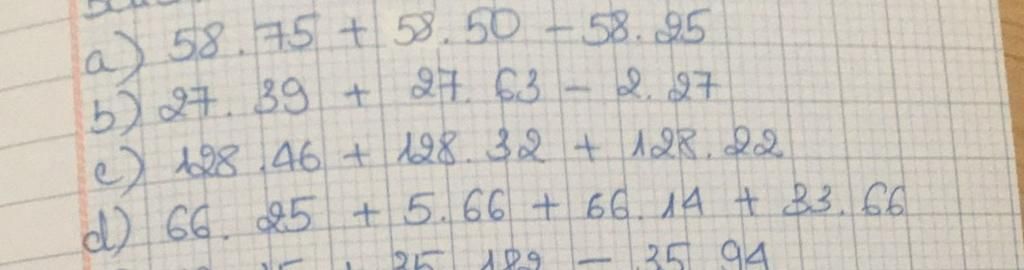 a) 58.75 + 58.50 - 58.25
b) 27.39 + 27.63 - 2.27
c) 128.46 + 128.32 + 128.22
d) 66.25 + 5.66 + 66.14 + 33.66
35 189 - 35 94